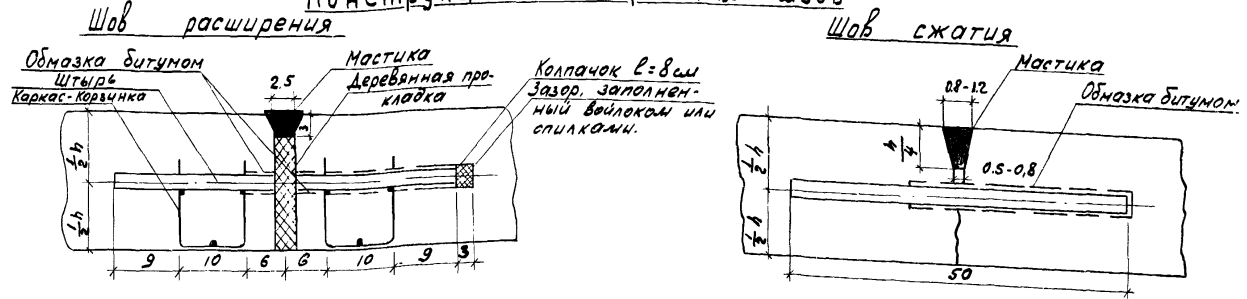 Шов расширения
Шов сжатия
Обмазка битумом
Штырь
Каркас-Корзинка
2.5
Мастика
Деревянная про-
кладка
Колпачок l=8см
Зазор, заполнен-
ный войлоком или
спилками.
3
1/2 h
1/2 h
9 10 6 6 10 9 3
Мастика
0.8-1.2
Обмазка битумом
h/4
0.5-0,8
1/2 h
1/2 h
50